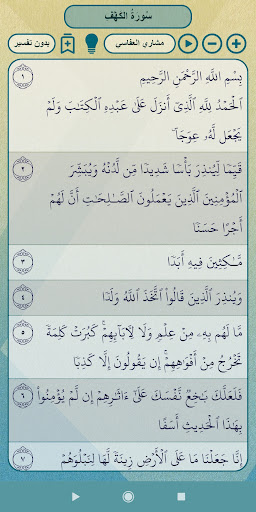 سُورَةُ الكَهْف
بدون تفسير
مشاري العفاسي
١
بِسْمِ اللَّهِ الرَّحْمَٰنِ الرَّحِيمِ
ٱلْحَمْدُ لِلَّهِ ٱلَّذِىٓ أَنزَلَ عَلَىٰ عَبْدِهِ ٱلْكِتَٰبَ وَلَمْ
يَجْعَل لَّهُۥ عِوَجَا ۜ
٢
قَيِّمًا لِّيُنذِرَ بَأْسًا شَدِيدًا مِّن لَّدُنْهُ وَيُبَشِّرَ
ٱلْمُؤْمِنِينَ ٱلَّذِينَ يَعْمَلُونَ ٱلصَّٰلِحَٰتِ أَنَّ لَهُمْ
أَجْرًا حَسَنًا
٣
مَّٰكِثِينَ فِيهِ أَبَدًا
٤
وَيُنذِرَ ٱلَّذِينَ قَالُوا۟ ٱتَّخَذَ ٱللَّهُ وَلَدًا
٥
مَّا لَهُم بِهِۦ مِنْ عِلْمٍ وَلَا لِءَابَآئِهِمْ ۚ كَبُرَتْ كَلِمَةً
تَخْرُجُ مِنْ أَفْوَٰهِهِمْ ۚ إِن يَقُولُونَ إِلَّا كَذِبًا
٦
فَلَعَلَّكَ بَٰخِعٌ نَّفْسَكَ عَلَىٰٓ ءَاثَٰرِهِمْ إِن لَّمْ يُؤْمِنُوا۟
بِهَٰذَا ٱلْحَدِيثِ أَسَفًا
٧
إِنَّا جَعَلْنَا مَا عَلَى ٱلْأَرْضِ زِينَةً لَّهَا لِنَبْلُوَهُمْ